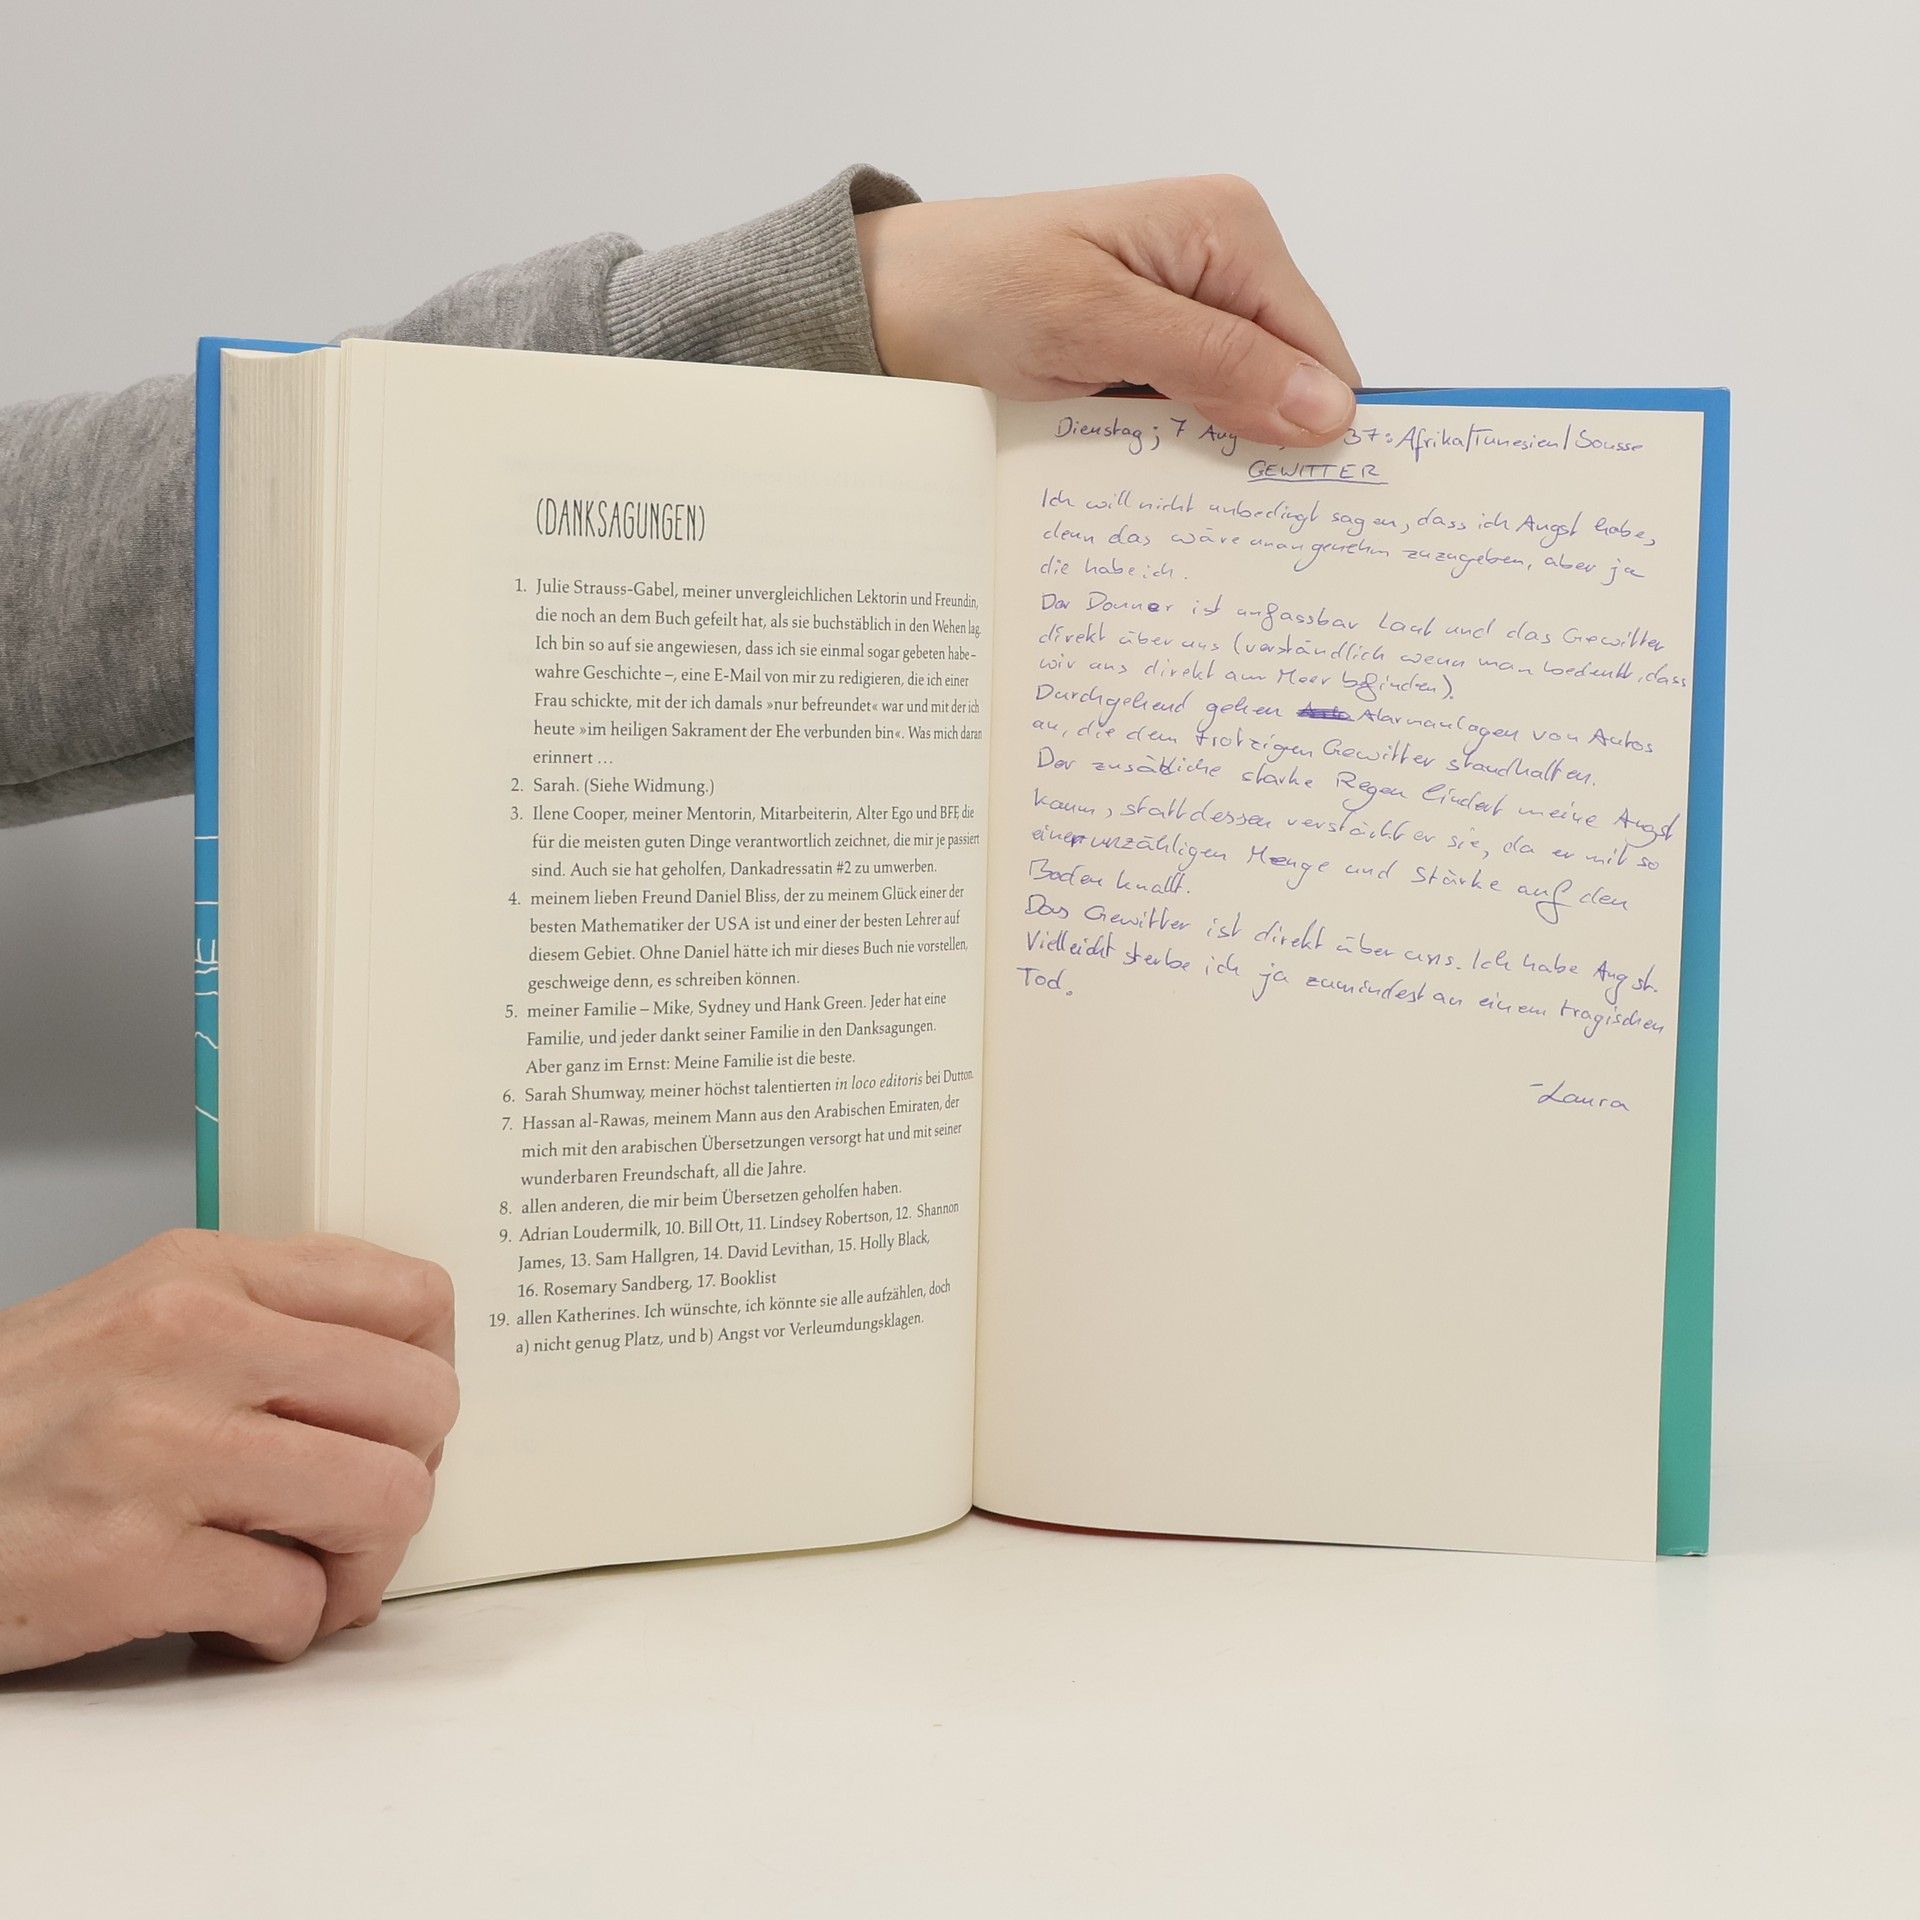 (DANKSAGUNGEN)
1. Julie Strauss-Gabel, meiner unvergleichlichen Lektorin und Freundin,
die noch an dem Buch gefeilt hat, als sie buchstäblich in den Wehen lag.
Ich bin so auf sie angewiesen, dass ich sie einmal sogar gebeten habe –
wahre Geschichte –, eine E-Mail von mir zu redigieren, die ich einer
Frau schickte, mit der ich damals »nur befreundet« war und mit der ich
heute »im heiligen Sakrament der Ehe verbunden bin«. Was mich daran
erinnert …
2. Sarah. (Siehe Widmung.)
3. Ilene Cooper, meiner Mentorin, Mitarbeiterin, Alter Ego und BFF, die
für die meisten guten Dinge verantwortlich zeichnet, die mir je passiert
sind. Auch sie hat geholfen, Dankadressatin #2 zu umwerben.
4. meinem lieben Freund Daniel Bliss, der zu meinem Glück einer der
besten Mathematiker der USA ist und einer der besten Lehrer auf
diesem Gebiet. Ohne Daniel hätte ich mir dieses Buch nie vorstellen,
geschweige denn, es schreiben können.
5. meiner Familie – Mike, Sydney und Hank Green. Jeder hat eine
Familie, und jeder dankt seiner Familie in den Danksagungen.
Aber ganz im Ernst: Meine Familie ist die beste.
6. Sarah Shumway, meiner höchst talentierten in loco editoris bei Dutton.
7. Hassan al-Rawas, meinem Mann aus den Arabischen Emiraten, der
mich mit den arabischen Übersetzungen versorgt hat und mit seiner
wunderbaren Freundschaft, all die Jahre.
8. allen anderen, die mir beim Übersetzen geholfen haben.
9. Adrian Loudermilk, 10. Bill Ott, 11. Lindsey Robertson, 12. Shannon
James, 13. Sam Hallgren, 14. David Levithan, 15. Holly Black,
16. Rosemary Sandberg, 17. Booklist
19. allen Katherines. Ich wünschte, ich könnte sie alle aufzählen, doch
a) nicht genug Platz, und b) Angst vor Verleumdungsklagen.
Dienstag; 7 Aug 37: Afrika/Tunesien/Sousse
GEWITTER
Ich will nicht unbedingt sagen, dass ich Angst habe,
denn das wäre unangenehm zuzugeben, aber ja
die habe ich.
Der Donner ist unfassbar laut und das Gewitter
direkt über uns (verständlich wenn man bedenkt, dass
wir uns direkt am Meer befinden).
Durchgehend gehen Alarmanlagen von Autos
an, die dem trotzigen Gewitter standhalten.
Der zusätzliche starke Regen lindert meine Angst
kaum, stattdessen verstärkt er sie, da er mit so
einer unzähligen Menge und Stärke auf den
Boden knallt.
Das Gewitter ist direkt über uns. Ich habe Angst.
Vielleicht sterbe ich ja zumindest an einem tragischen
Tod.
-Laura